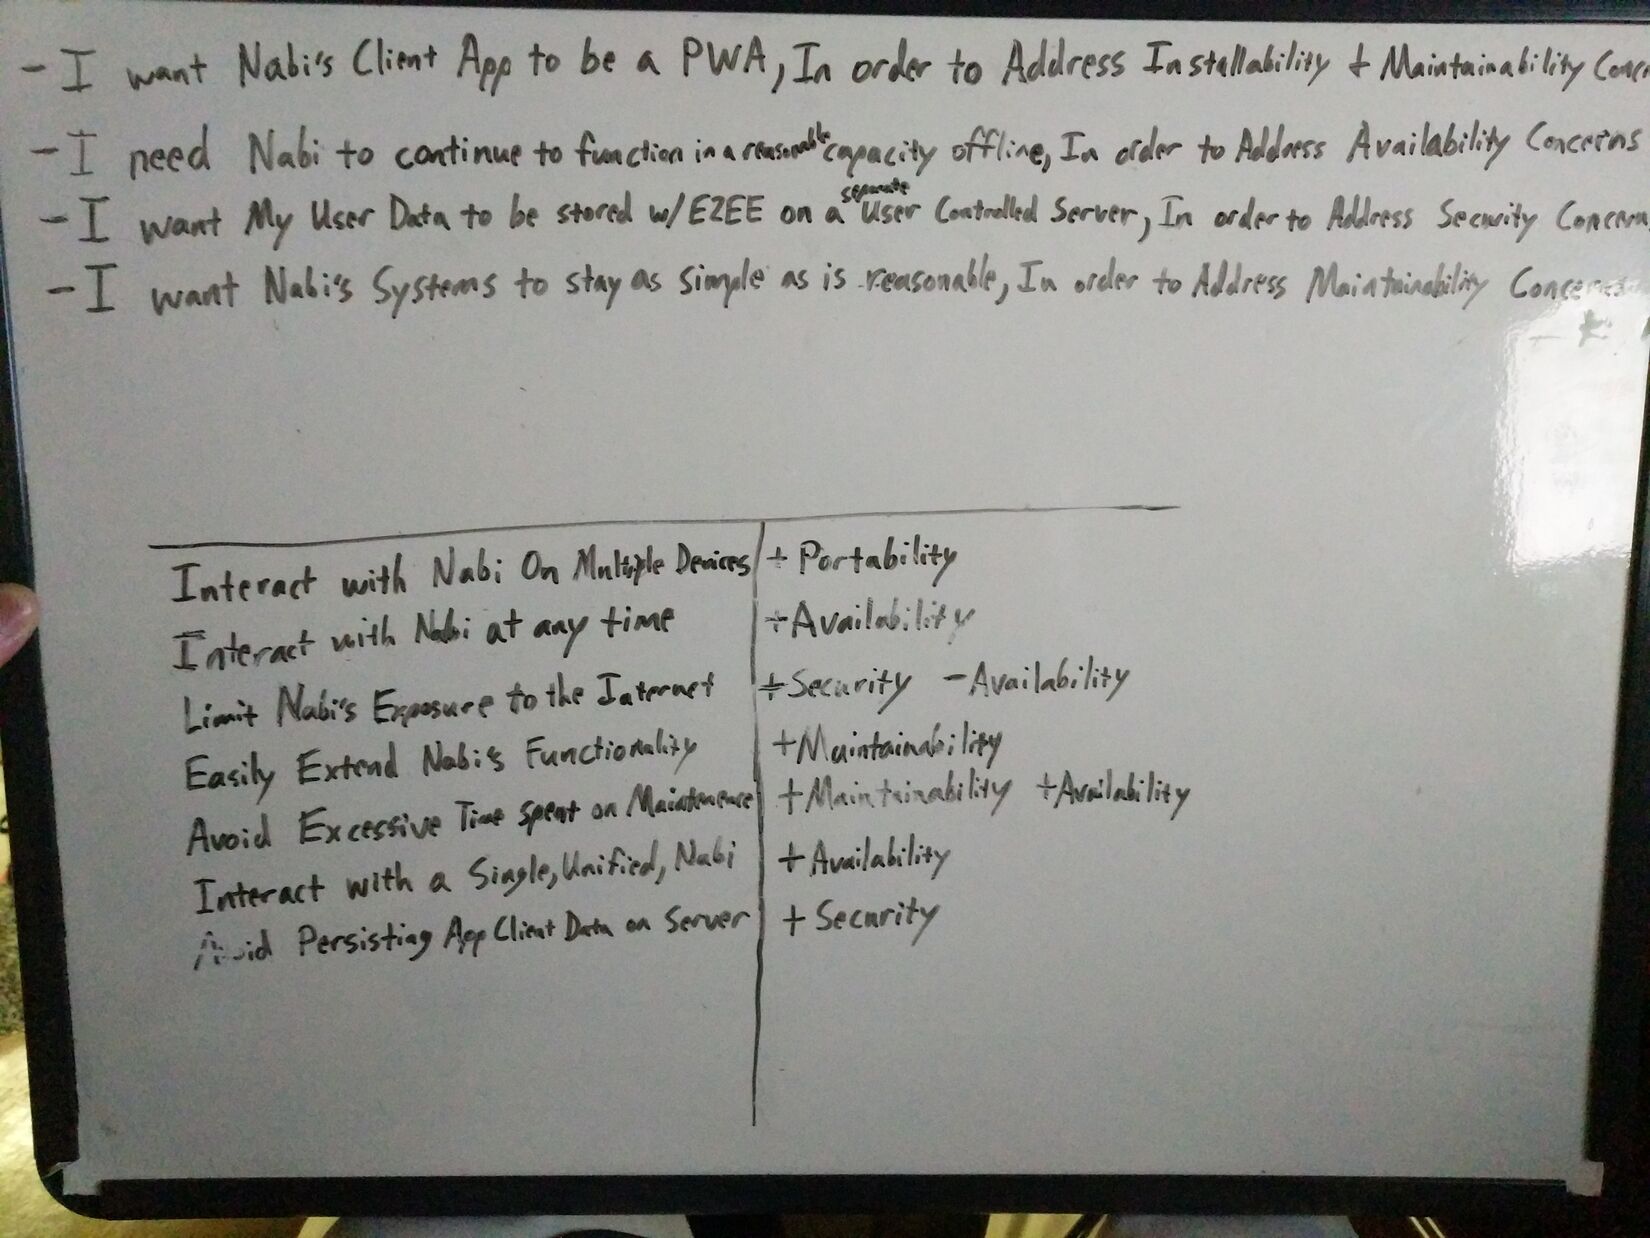 - I want Nabi's Client App to be a PWA, In order to Address Installability + Maintainability Concer
- I need Nabi to continue to function in a reasonable capacity offline, In order to Address Availability Concerns
- I want My User Data to be stored w/ E2EE on a separate User Controlled Server, In order to Address Security Concern
- I want Nabi's Systems to stay as simple as is reasonable, In order to Address Maintainability Concerns
Interact with Nabi On Multiple Devices + Portability
Interact with Nabi at any time + Availability
Limit Nabi's Exposure to the Internet + Security - Availability
Easily Extend Nabi's Functionality + Maintainability
Avoid Excessive Time spent on Maintenence + Maintainability + Availability
Interact with a Single, Unified, Nabi + Availability
Avoid Persisting App Client Data on Server + Security